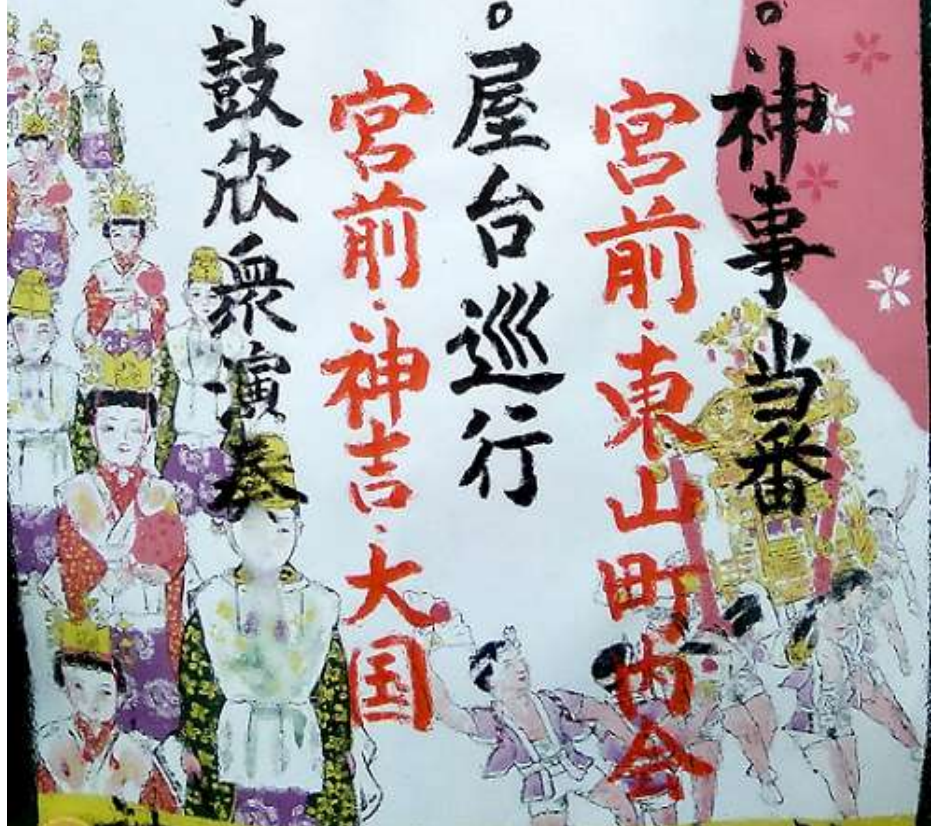 。神事当番
宮前・東山町内会
。屋台巡行
宮前・神吉・大国
鼓欣衆演奏